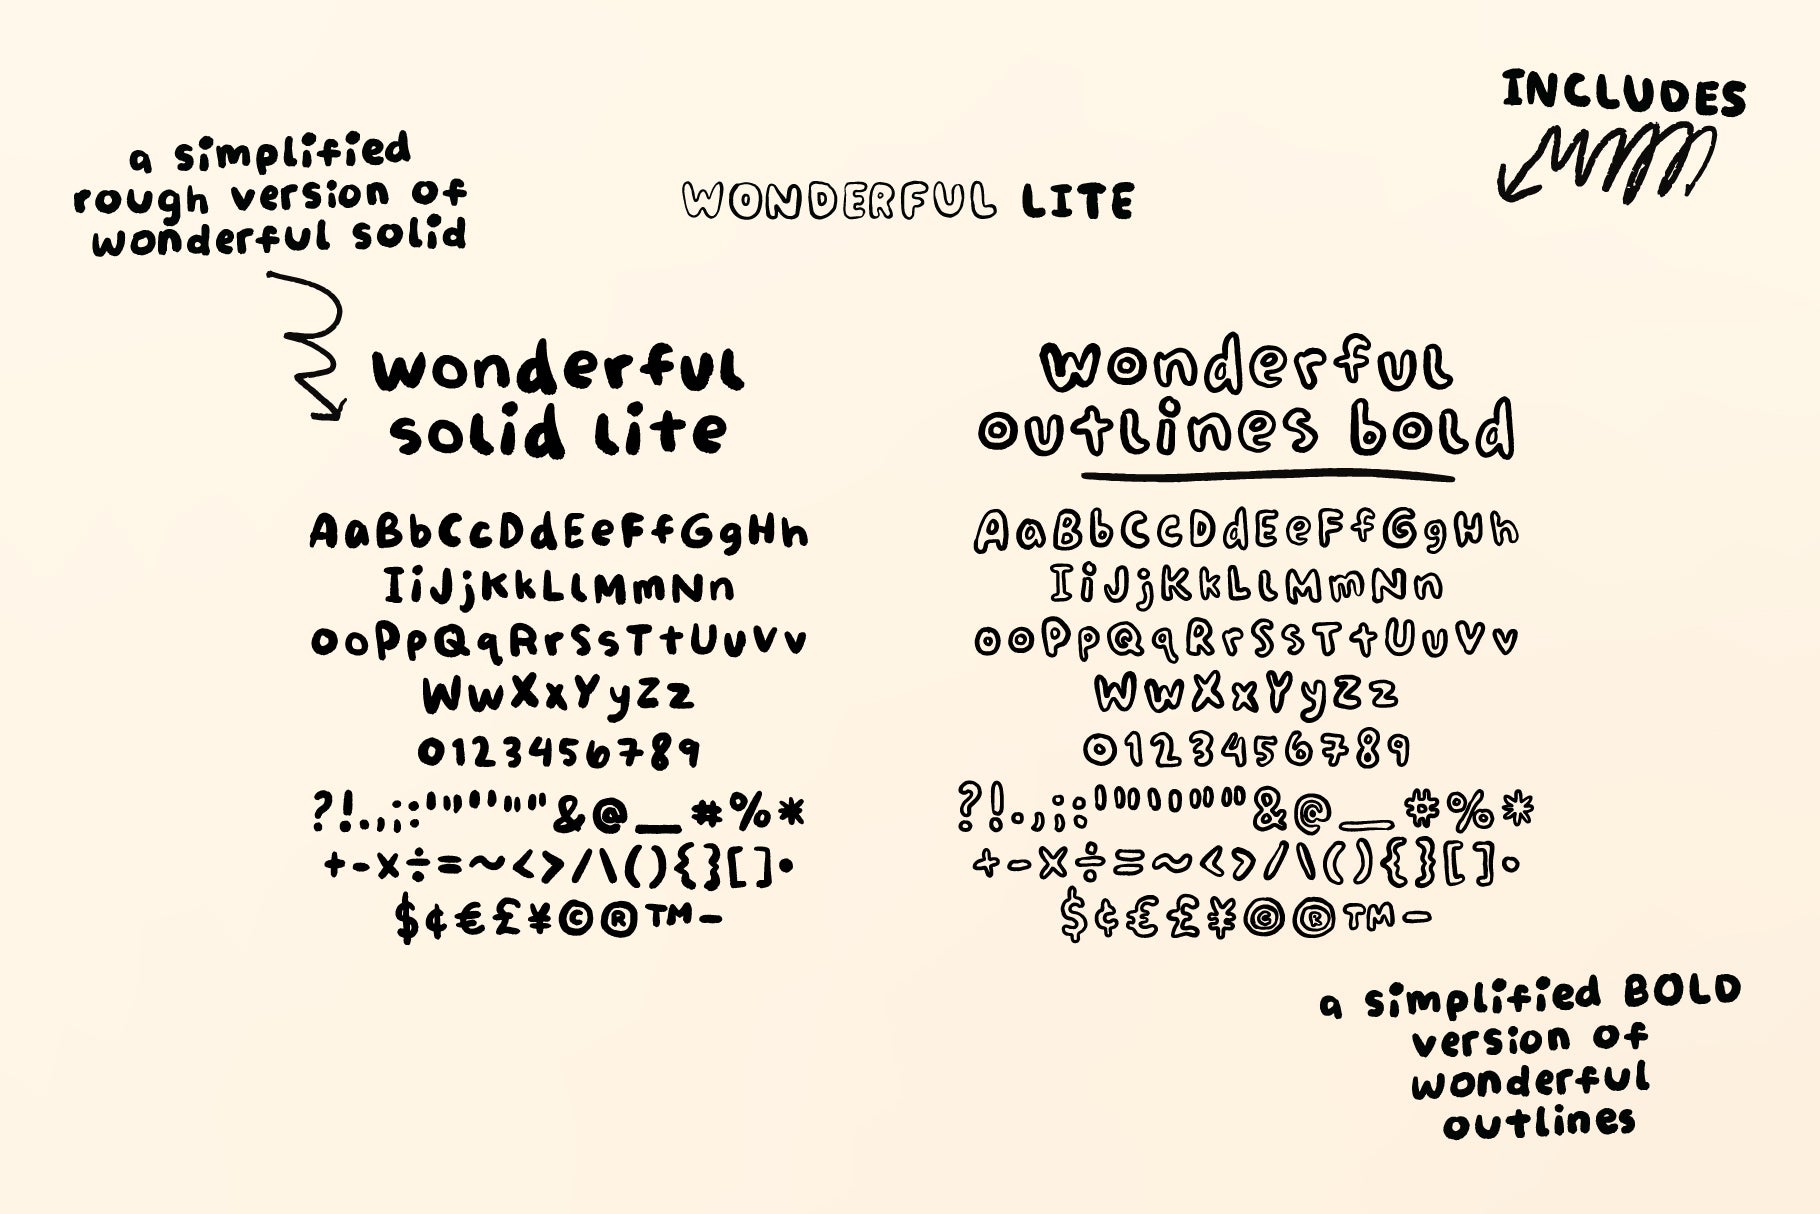 INCLUDES
a simplified
rough version of
wonderful solid
WONDERFUL LITE
wonderful
solid lite
AaBbCcDdEeFfGgHh
IiJjKkLlMmNn
OoPpQqRrSsTtUuVv
WwXxYyZz
0123456789
?!.,;:'"‘’“”&@_#%*
+-×÷=~<>/\(){}[]•
$¢€£¥©®™–
wonderful
outlines bold
AaBbCcDdEeFfGgHh
IiJjKkLlMmNn
OoPpQqRrSsTtUuVv
WwXxYyZz
0123456789
?!.,;:'"‘’“”&@_#%*
+-×÷=~<>/\(){}[]•
$¢€£¥©®™–
a simplified BOLD
version of
wonderful
outlines